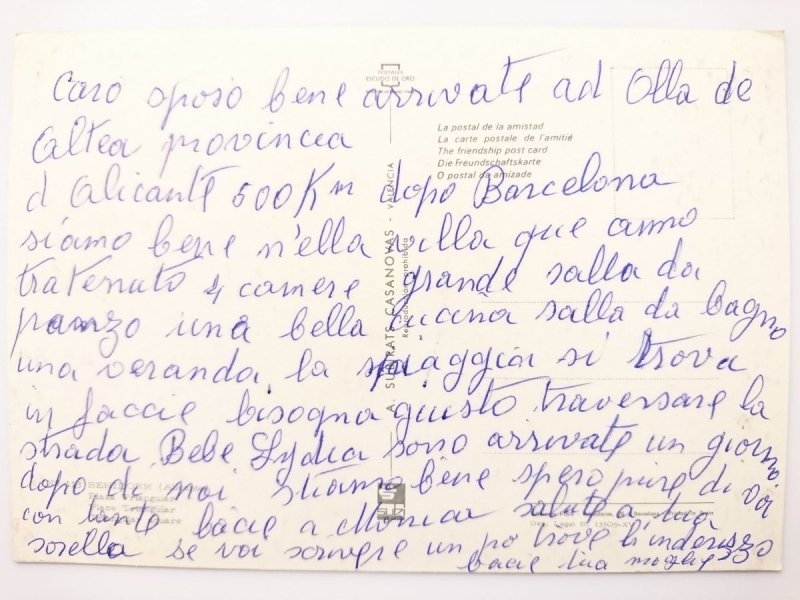 POSTALES
ESCUDO DE ORO
Caro sposo bene arrivate ad Olla de
Caltea provincia
d Alicante 500 Km dopo Barcelona
siamo bene n'ella villa que anno
tratenuto 4 camere grande salla da
pranzo una bella cucina salla da bagno
una veranda la spiaggia si trova
in faccie bisogna giusto traversare la
strada Bebe Lydia sono arrivate un giorno
dopo di noi stiamo bene spero pure di voi
con tante bacie a Monica saluta a tua
sorella se voi scrivere un po trove l'inderizzo
bacie tua moglie
La postal de la amistad
La carte postale de l'amitié
The friendship post card
Die Freundschaftskarte
O postal da amizade
A. SUBIRATS CASANOVAS - VALENCIA
Reproducción prohibida
BENIDORM
Dep. Legal B.